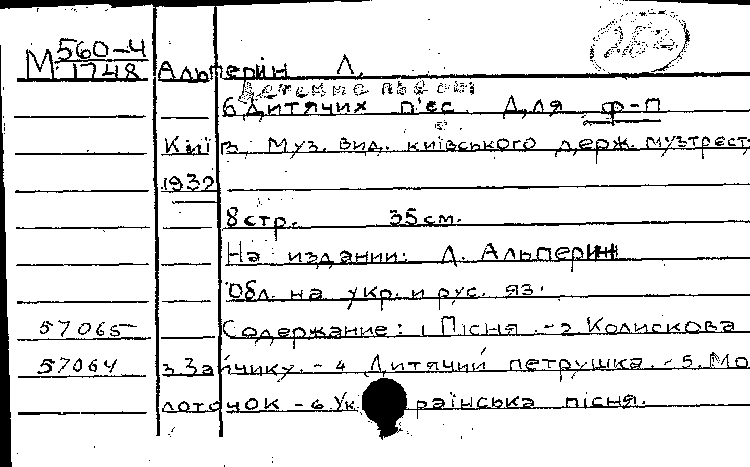 252
М 560-4
1748
Альперін Л.
Детские пьесы
6 Дитячих п'ес. Для ф-п
Київ, Муз. вид. київського держ. музтрест
1932
8 стр. 35 см.
На издании: Л. Альперин
Обл. на укр. и рус. яз.
57065 Содержание: 1 Пісня. - 2 Колискова
57064 3 Зайчику. - 4 Дитячий петрушка. - 5. Мо
лоточок - 6 Українська пісня.